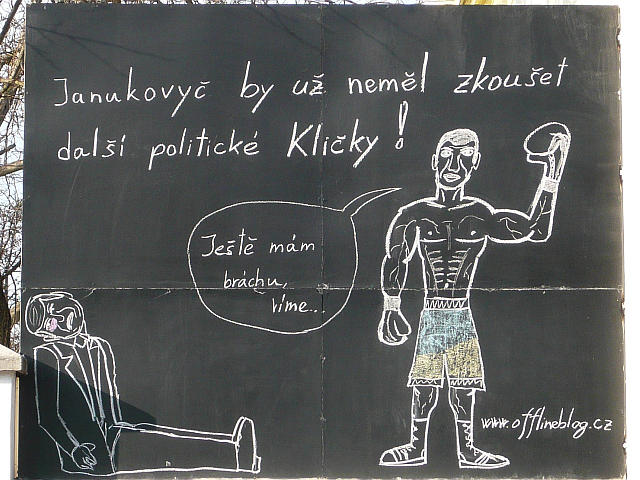 Janukovyč by už neměl zkoušet
další politické Kličky!
Ještě mám
bráchu,
víme...
www.offlineblog.cz